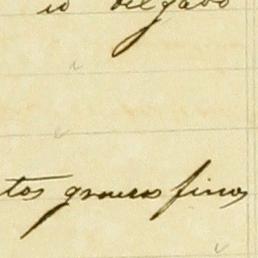 io delgado
tos grueso finos